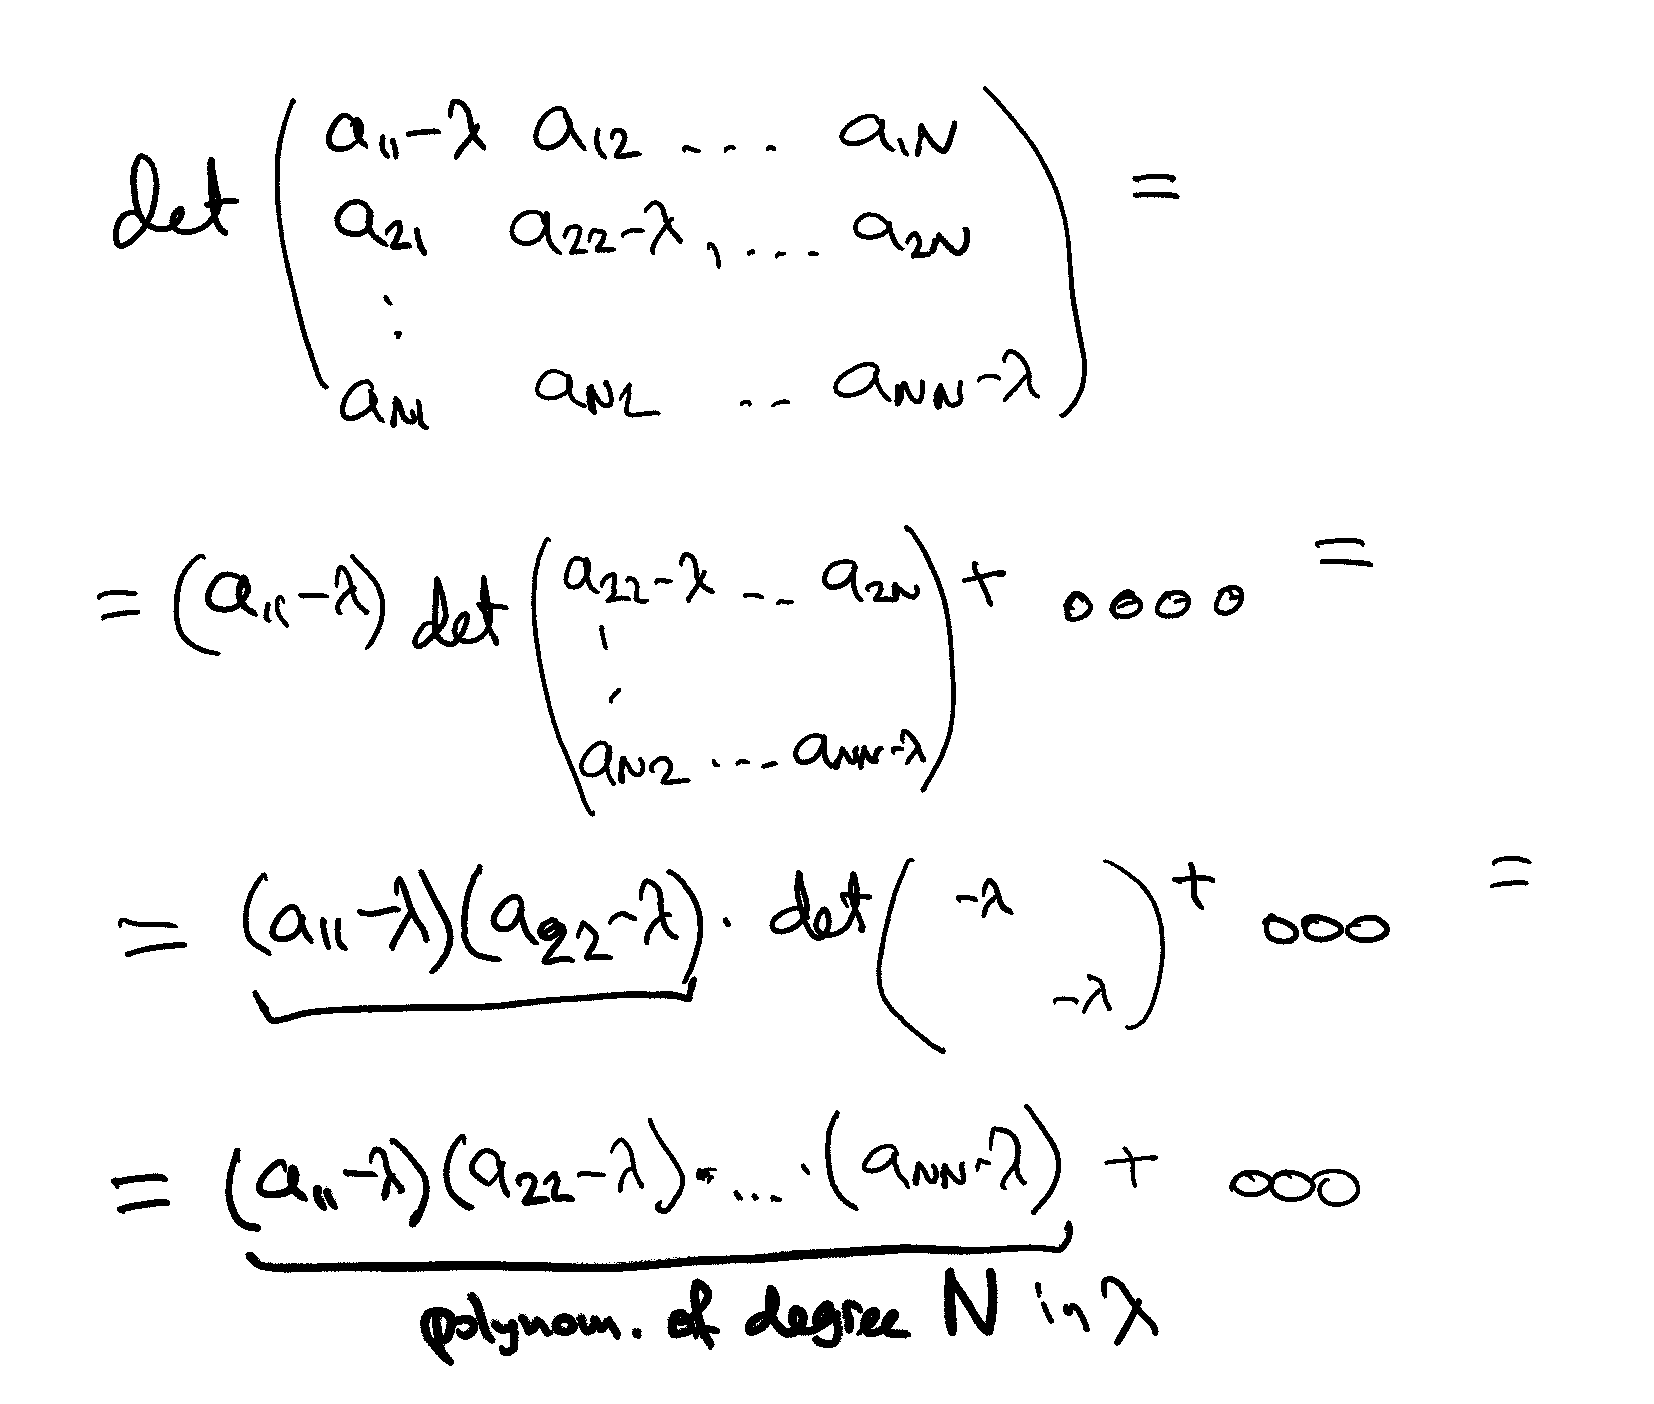 det ( a₁₁-λ a₁₂ ... a₁N ) =
a₂₁ a₂₂-λ, ... a₂N
:
aN₁ aN₂ .. aNN-λ
= (a₁₁-λ) det ( a₂₂-λ ... a₂N ) + oooo =
:
aN₂ ... aNN-λ
= (a₁₁-λ)(a₂₂-λ) · det ( -λ ) + ooo =
-λ
= (a₁₁-λ)(a₂₂-λ)·...·(aNN-λ) + ooo
polynom. of degree N in λ